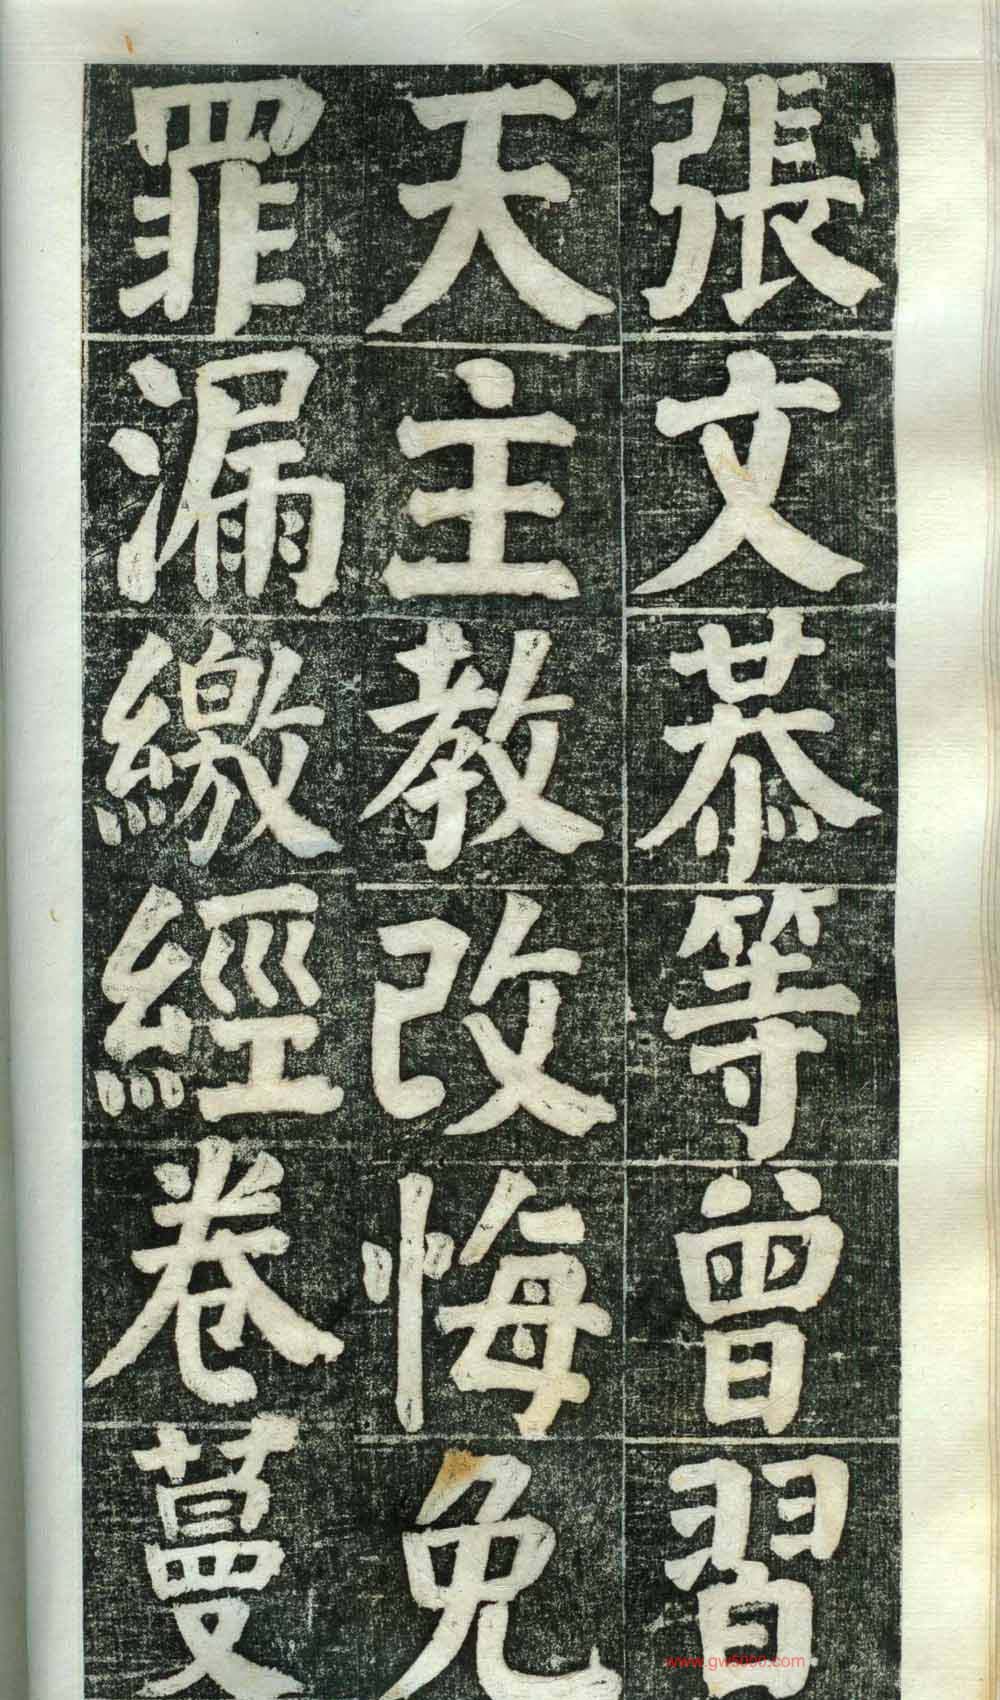 張文恭等曾習
天主教改悔免
罪漏繳經卷蔓
www.gw5000.com